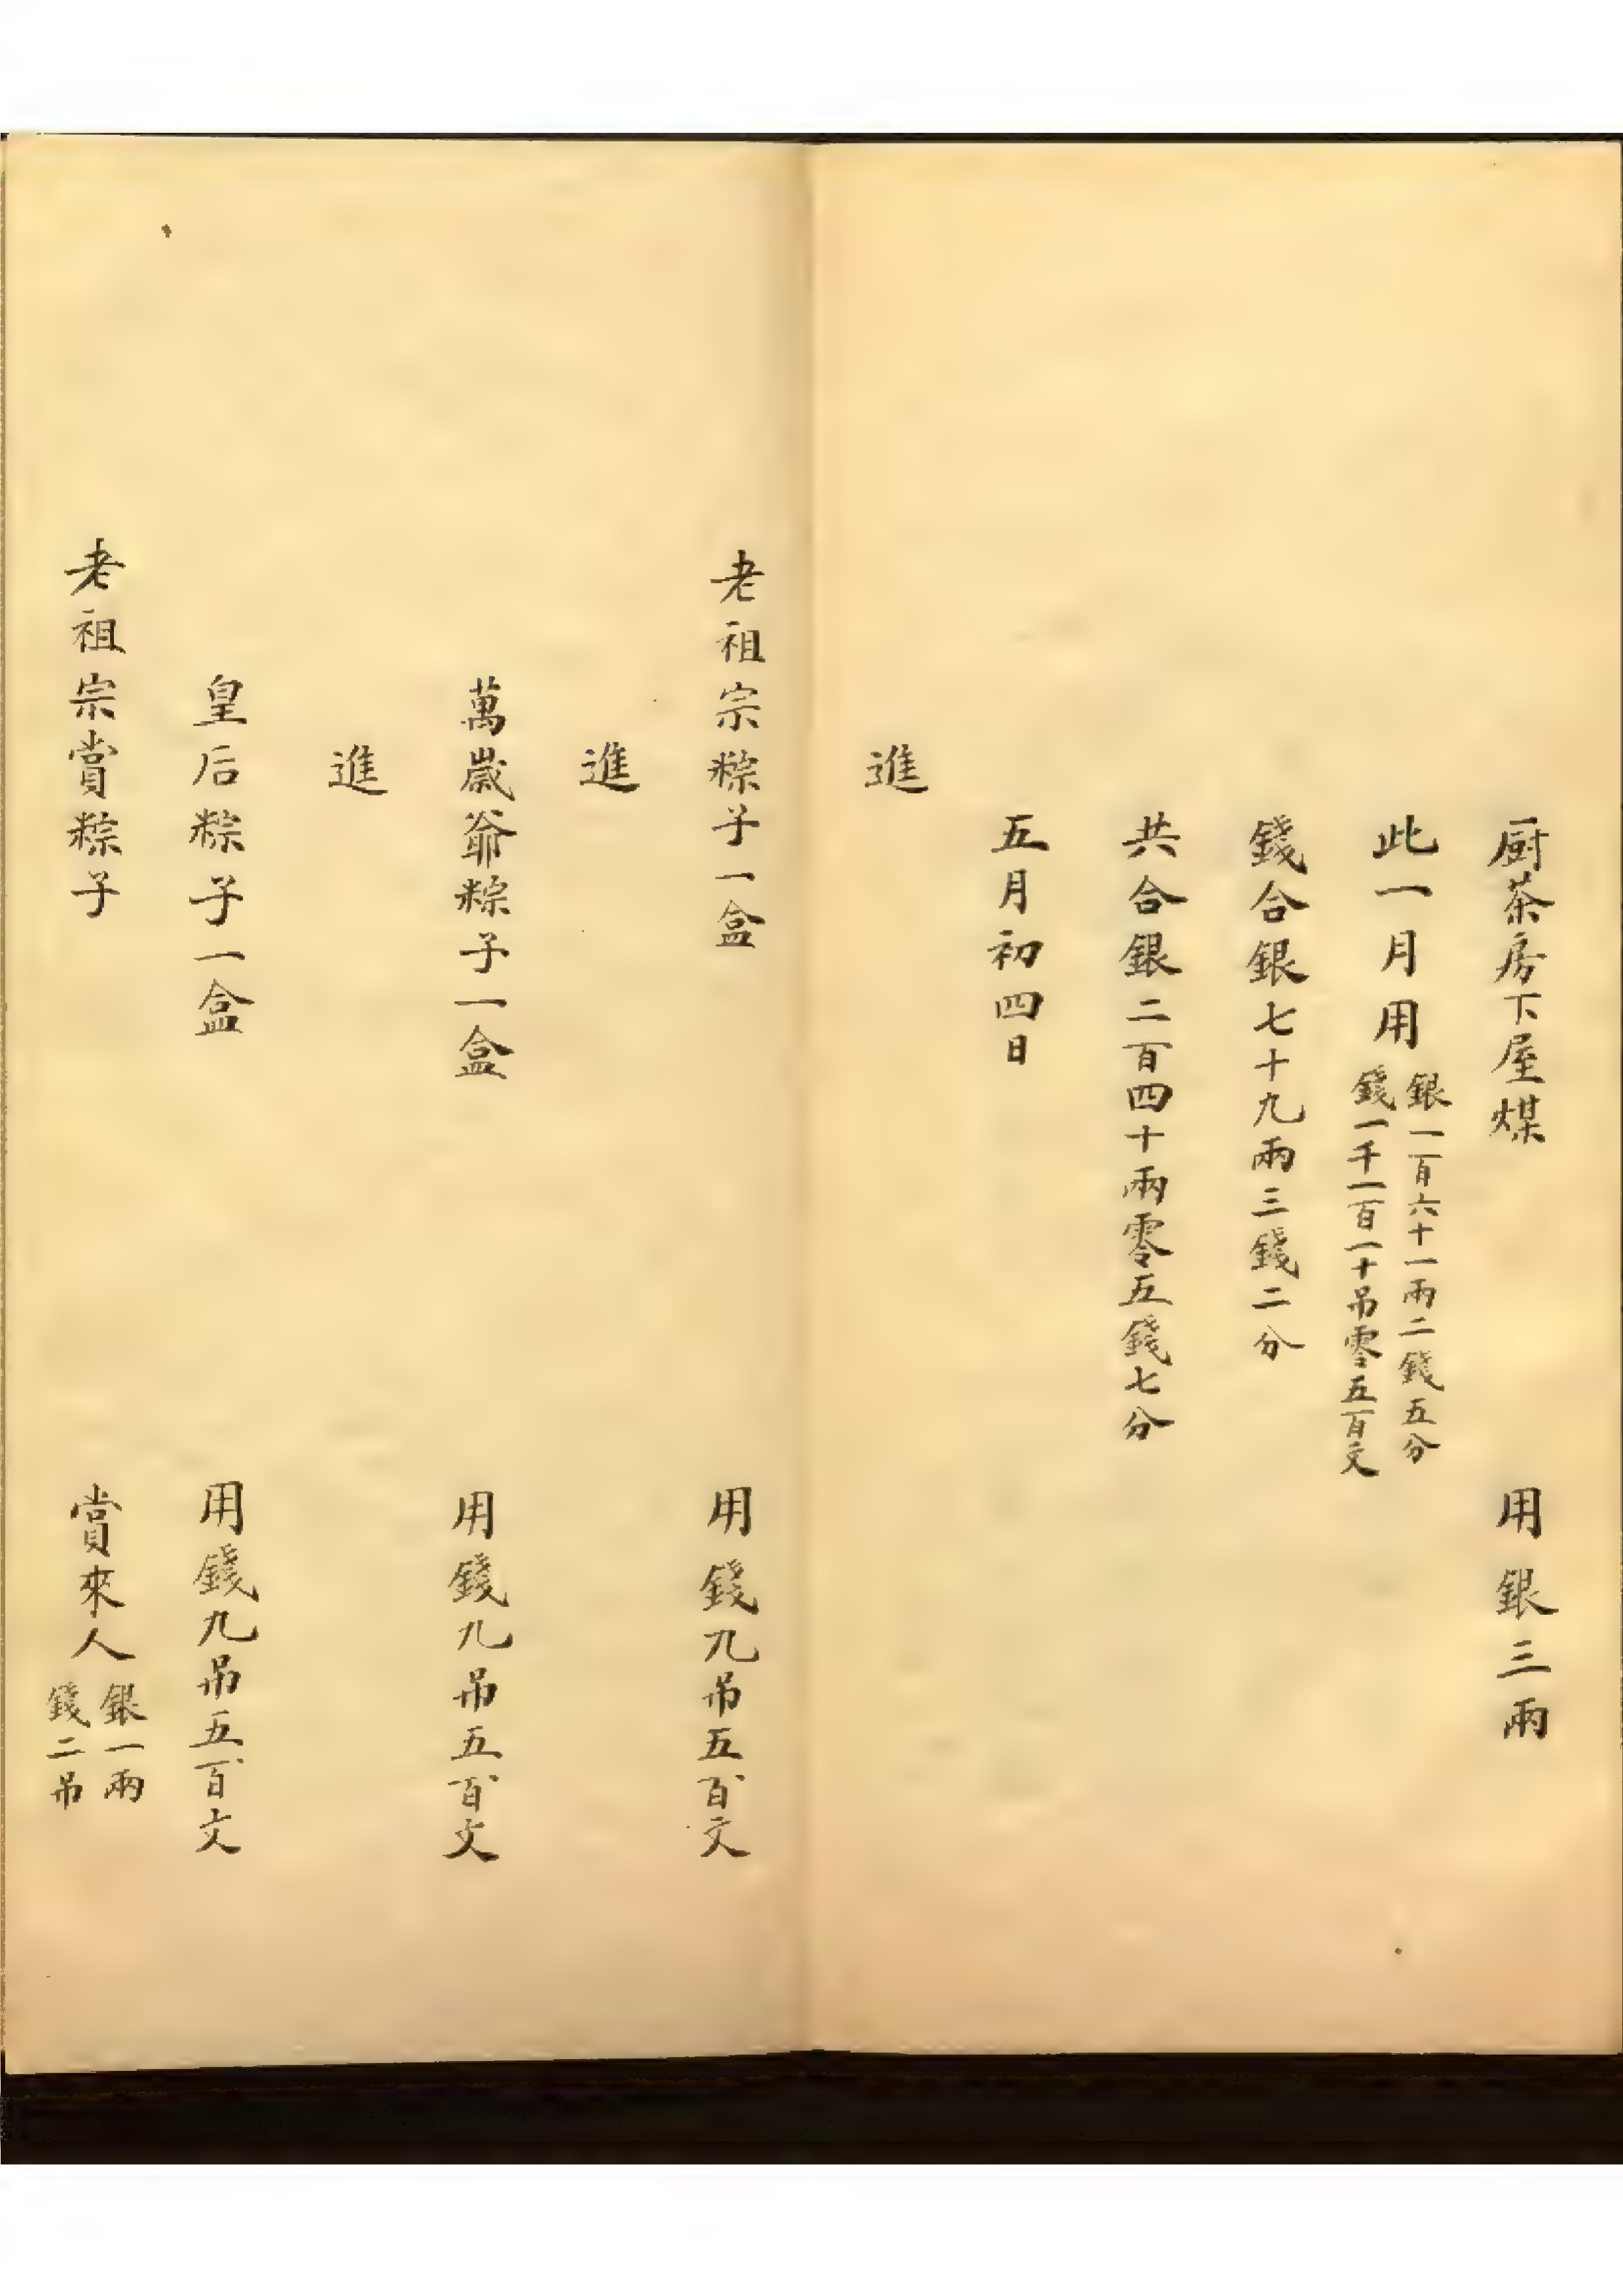 厨茶房下屋煤 用銀三兩
此一月用 銀一百六十一兩二錢五分
錢一千一百一十吊零五百文
錢合銀七十九兩三錢二分
共合銀二百四十兩零五錢七分
五月初四日
進
老祖宗粽子一盒 用錢九吊五百文
進
萬歲爺粽子一盒 用錢九吊五百文
進
皇后粽子一盒 用錢九吊五百文
老祖宗賞粽子 賞來人 銀一兩
錢二吊